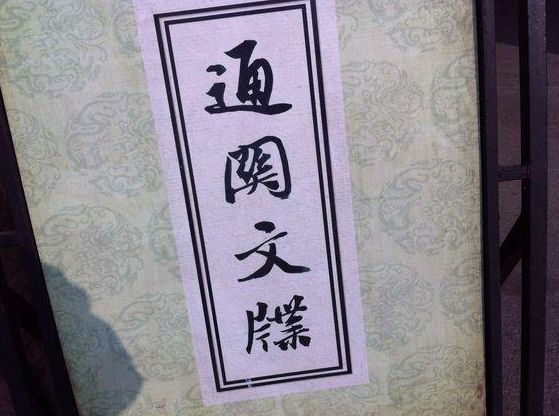 通關文牒